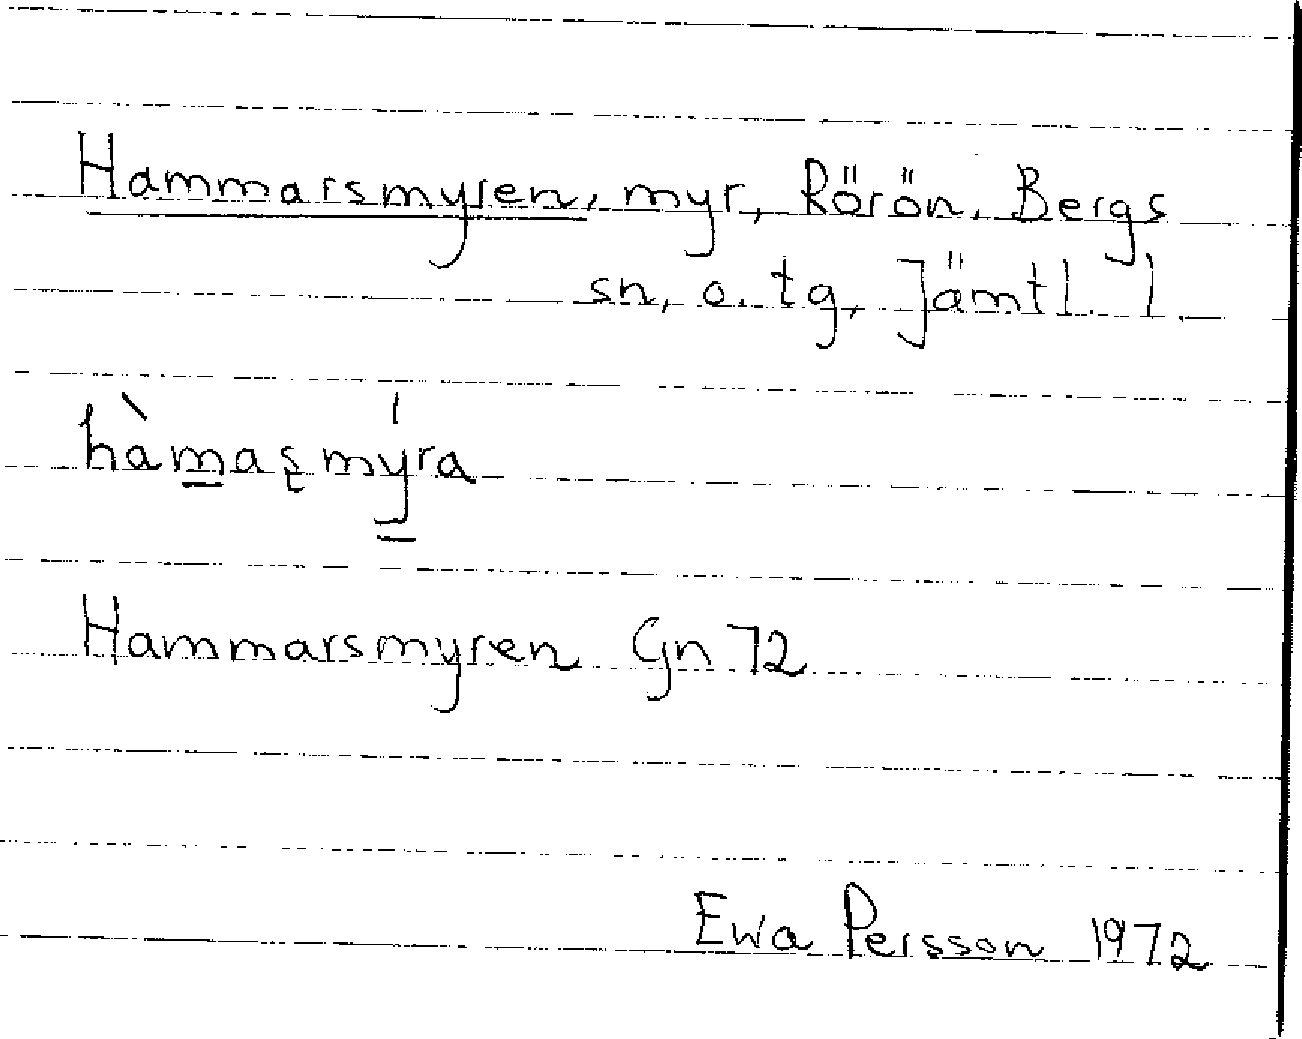 Hammarsmyren, myr, Rörön, Bergs
sn, o. tg, Jämtl. l.
hàm̲aʂmý̳ra
Hammarsmyren Gn 72
Ewa Persson 1972